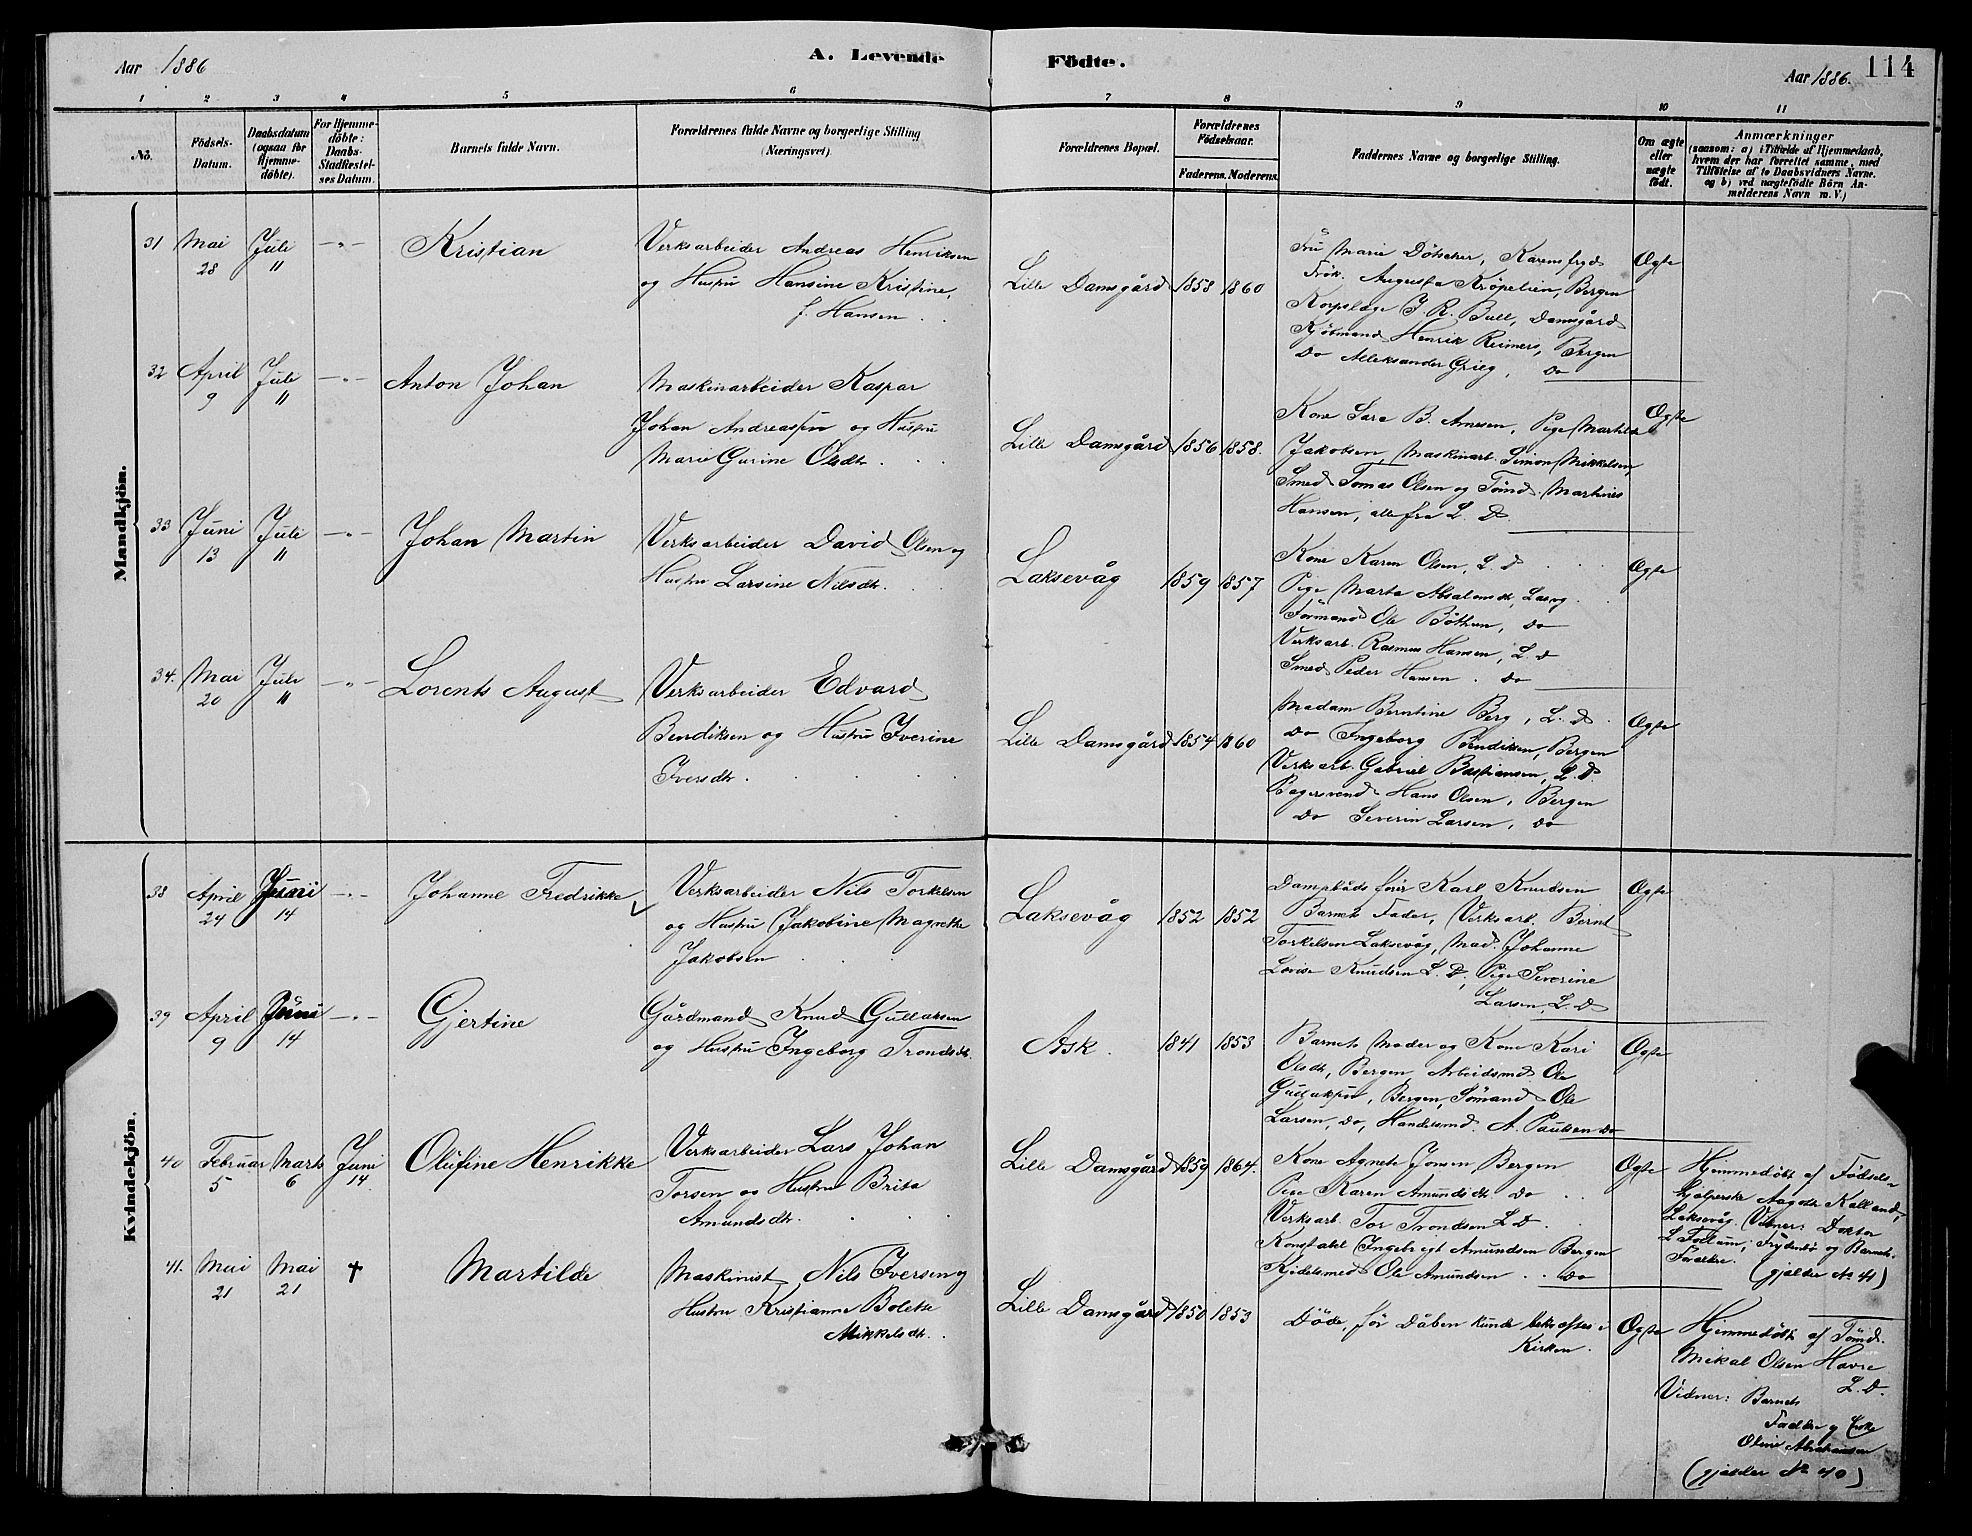 Aar 1886
A. Levende
Födte.
Aar 1886.
114
1 2 3 4 5 6 7 8 9 10 11
No.
Födsels-
Datum.
Daabsdatum
(ogsaa for
Hjemme-
döbte).
For Hjemme-
döbte:
Daabs-
Stadfæstel-
ses Datum.
Barnets fulde Navn.
Forældrenes fulde Navne og borgerlige Stilling
(Næringsvei).
Forældrenes Bopæl.
Forældrenes
Födselsaar.
Faderens. Moderens.
Faddernes Navne og borgerlige Stilling.
Om ægte
eller
uægte
födt.
Anmærkninger
(saasom: a) i Tilfælde af Hjemmedaab,
hvem der har forrettet samme, med
Tilföielse af to Daabsvidners Navne.
og b) ved uægtefödte Börn An-
melderens Navn m. V.)
Mandkjön.
31 Mai 28 Juli 11 -"- Kristian
Verksarbeider Andreas Henriksen
og Hustru Hansine Kristine,
f. Hansen . .
Lille Damsgård 1858 1860
Fru Marie Dötscher, Karensfryd
Frök. Augusta Kröpelien, Bergen
Korpslæge J. R. Bull, Damsgård
Kjöbmand Henrik Reimers, Bergen
Do Alleksander Grieg, Do
Ægte
32 April 9 Juli 11 -"- Anton Johan
Maskinarbeider Kaspar
Johan Andreassen og Hustru
Marie Gurine Olsdtr. . .
Lille Damsgård 1856 1858.
Kone Sara B. Arnesen, Pige Martilde
Jakobsen, Maskinarb. Simon Mikkelsen,
Smed Tomas Olsen og Tömd. Martines
Hansen, alle fra L. D.
Ægte
33 Juni 13 Juli 11 -"- Johan Martin
Verksarbeider David Olsen og
Hustru Larsine Nilsdtr. . .
Laksevåg 1859 1857
Kone Karen Olsen, L. D . . .
Pige Marta Absalonsdt, Laksvg . .
Formand Ole Böthun, Do
Verksarb. Rasmus Hansen, L. D
Smed Peder Hansen . Do
Ægte
34. Mai 20 Juli 11 -"- Lorents August
Verksarbeider Edvard
Bendiksen og Hustru Iverine
Iversdtr. . . . .
Lille Damsgård 1854 1860
Madam Berntine Berg, L. D .
Do Ingeborg Bendiksen, Bergen
Verksarb. Gabriel Bastiansen, L. D.
Bagersvend Hans Olsen, Bergen
Do Severin Larsen, Do
Ægte
Kvindekjön.
38 April 24 Juni 14 -"- Johanne Fredrikke
Verksarbeider Nils Torkelsen
og Hustru Jakobine Magrethe
Jakobsen . . .
Laksevåg 1852 1852
Dampbåds förer Karl Knudsen
Barnets Fader, Verksarb. Bernt
Torkelsen Laksevåg, Mad. Johanne
Lovise Knudsen L. D, Pige Severine
Larsen, L. D
Ægte
39 April 9 Juni 14 -"- Gjertine
Gårdmand Knud Gullaksen
og Hustru Ingeborg Trondsdt.
Ask. 1841 1853
Barnets Moder og Kone Kari
Olsdt, Bergen Arbeidsmd. Ole
Gullaksen, Bergen, Sömand Ole
Larsen, Do, Handelsmd. A. Paulsen Do
Ægte
40 Februar 5 Marts 6 Juni 14 Olufine Henrikke
Verksarbeider Lars Johan
Torsen og Hustru Brita
Amundsdtr. . . .
Lille Damsgård 1859 1864.
Kone Agnete Jonsen Bergen
Pige Karen Amundsdt Do . .
Verksarb. Tor Trondsen L D .
Konstabel Ingebregt Amundsen Bergen
Kjedelsmed Ole Amundsen . . Do
Ægte
Hjemmedöbt af Födsels-
hjelperske Aagdte Kalland,
Laksevåg. Vidner: Doktor
Frydenbö og Barnets
Forældre.
(gjælder No 41)
41. Mai 21 Mai 21 † Martilde
Maskinist Nils Iversen og
Hustru Kristianne Bolette
Mikkelsdtr. .
Lille Damsgård 1850 1853
Döde, för Dåben kunde bekræftes i
Kirken.
Ægte
Hjemmedöbt af Tömd.
Mikal Olsen Havre
L. D.
Vidner: Barnets
Fader og Enke
Oline Abrahamsen
(gjælder No 40)